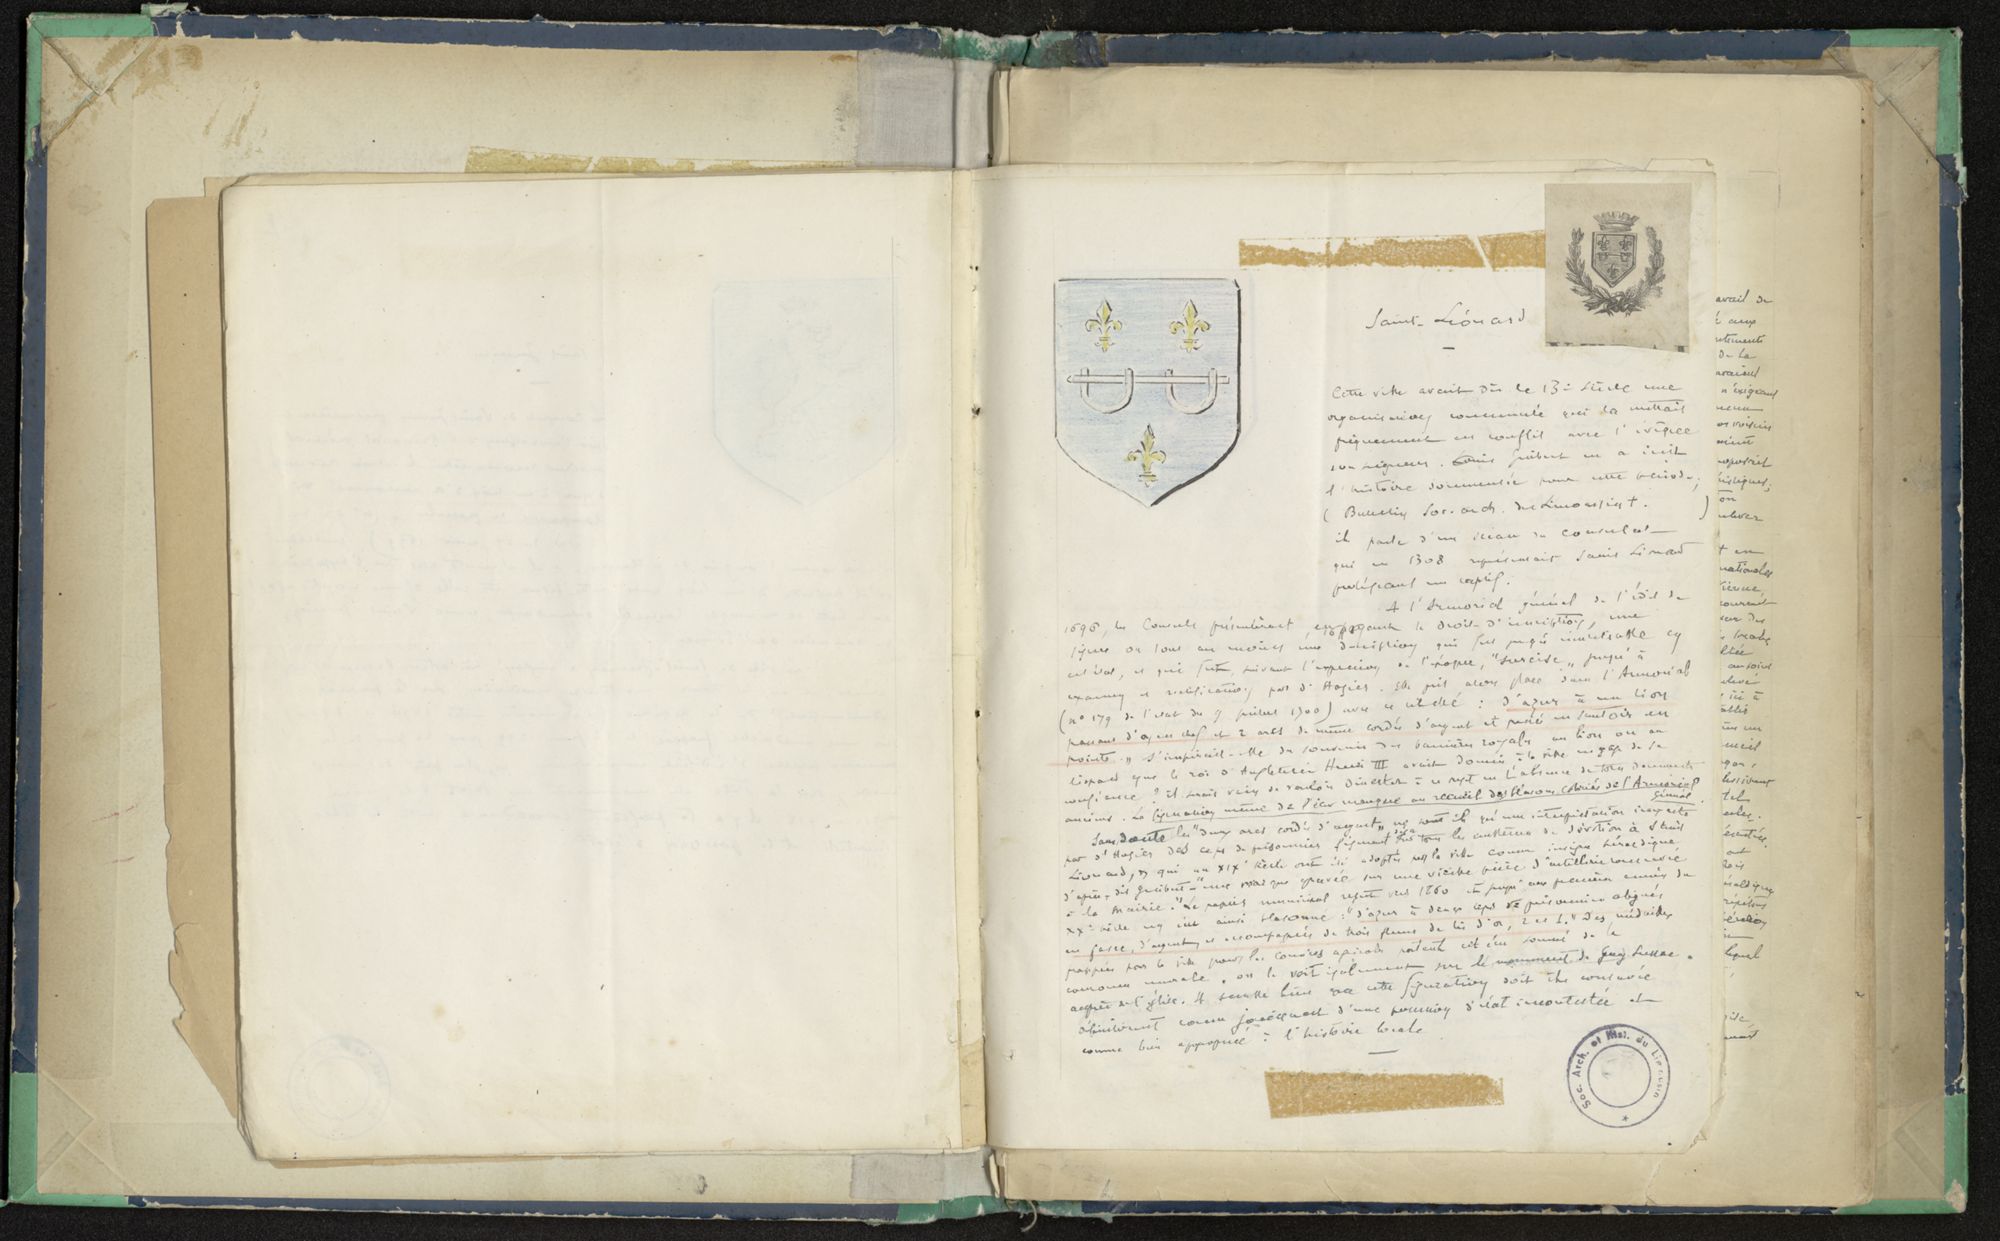 Saint-Léonard
Cette ville avait dès le 13e siècle une
organisation communale qui la mettait
fréquemment en conflit avec l'évêque
son seigneur. Louis Guibert en a écrit
l'histoire documentée pour cette période,
(Bulletin Soc. arch. du Limousin t. )
il parle d'un sceau du consulat
qui en 1308 représentait Saint Léonard
protégeant un captif.
A l'Armorial général de l'édit de
1696, les Consuls présentèrent, en payant le droit d'inscription, une
figure ou tout au moins une description qui fut jugée
état, et qui fut, suivant l'expression de l'époque, "sursise" jusqu'à
examen et rectification par d'Hozier. Elle prit alors place dans l'Armorial
(n° 179 de l'état du 9 juillet 1700) avec ce libellé : d'azur à un lion
passant d'or en chef et 2 arcs de même cordés d'argent et passés en sautoir en
pointe." S'inspirait-elle du souvenir des bannières royales au lion ou au
léopard que le roi d'Angleterre Henri III avait données à la ville en gage de sa
confiance ? Il serait vain de vouloir à ce sujet en l'absence de tous documents
anciens. La figuration même de l'écu manque au recueil des blasons coloriés de l'Armorial
Général
Sans doute les "deux arcs cordés d'argent" ne sont ils qu'une interprétation inexacte
par d'Hozier des ceps de prisonniers figurant sur tous les emblèmes de dévotion à Saint
Léonard, et qui au XIXe siècle ont été adoptés par la ville comme insigne héraldique
d'après, dit Guibert "une marque gravée sur une vieille pièce d'artillerie conservée
à la Mairie." Le papier municipal vers 1860 et jusqu'aux premières années du
XXe siècle un écu ainsi blasonné : "d'azur à deux ceps de prisonniers alignés
en fasce, d'argent, et accompagnés de trois fleurs de lis d'or, 2 et 1." Des médailles
frappées pour la ville pour les comices agricoles portent cet écu sommé de la
couronne murale. on le voit également sur le monument de Gay Lussac
auprès de l'église. Il semble bien que cette figuration doit être conservée
comme jouissant d'une possession d'état incontestée et
comme bien appropriée à l'histoire locale
Soc. Arch. et Hist. du Limousin
avail de
aux
de la
exigeant
voisins
proposait
en
nationales